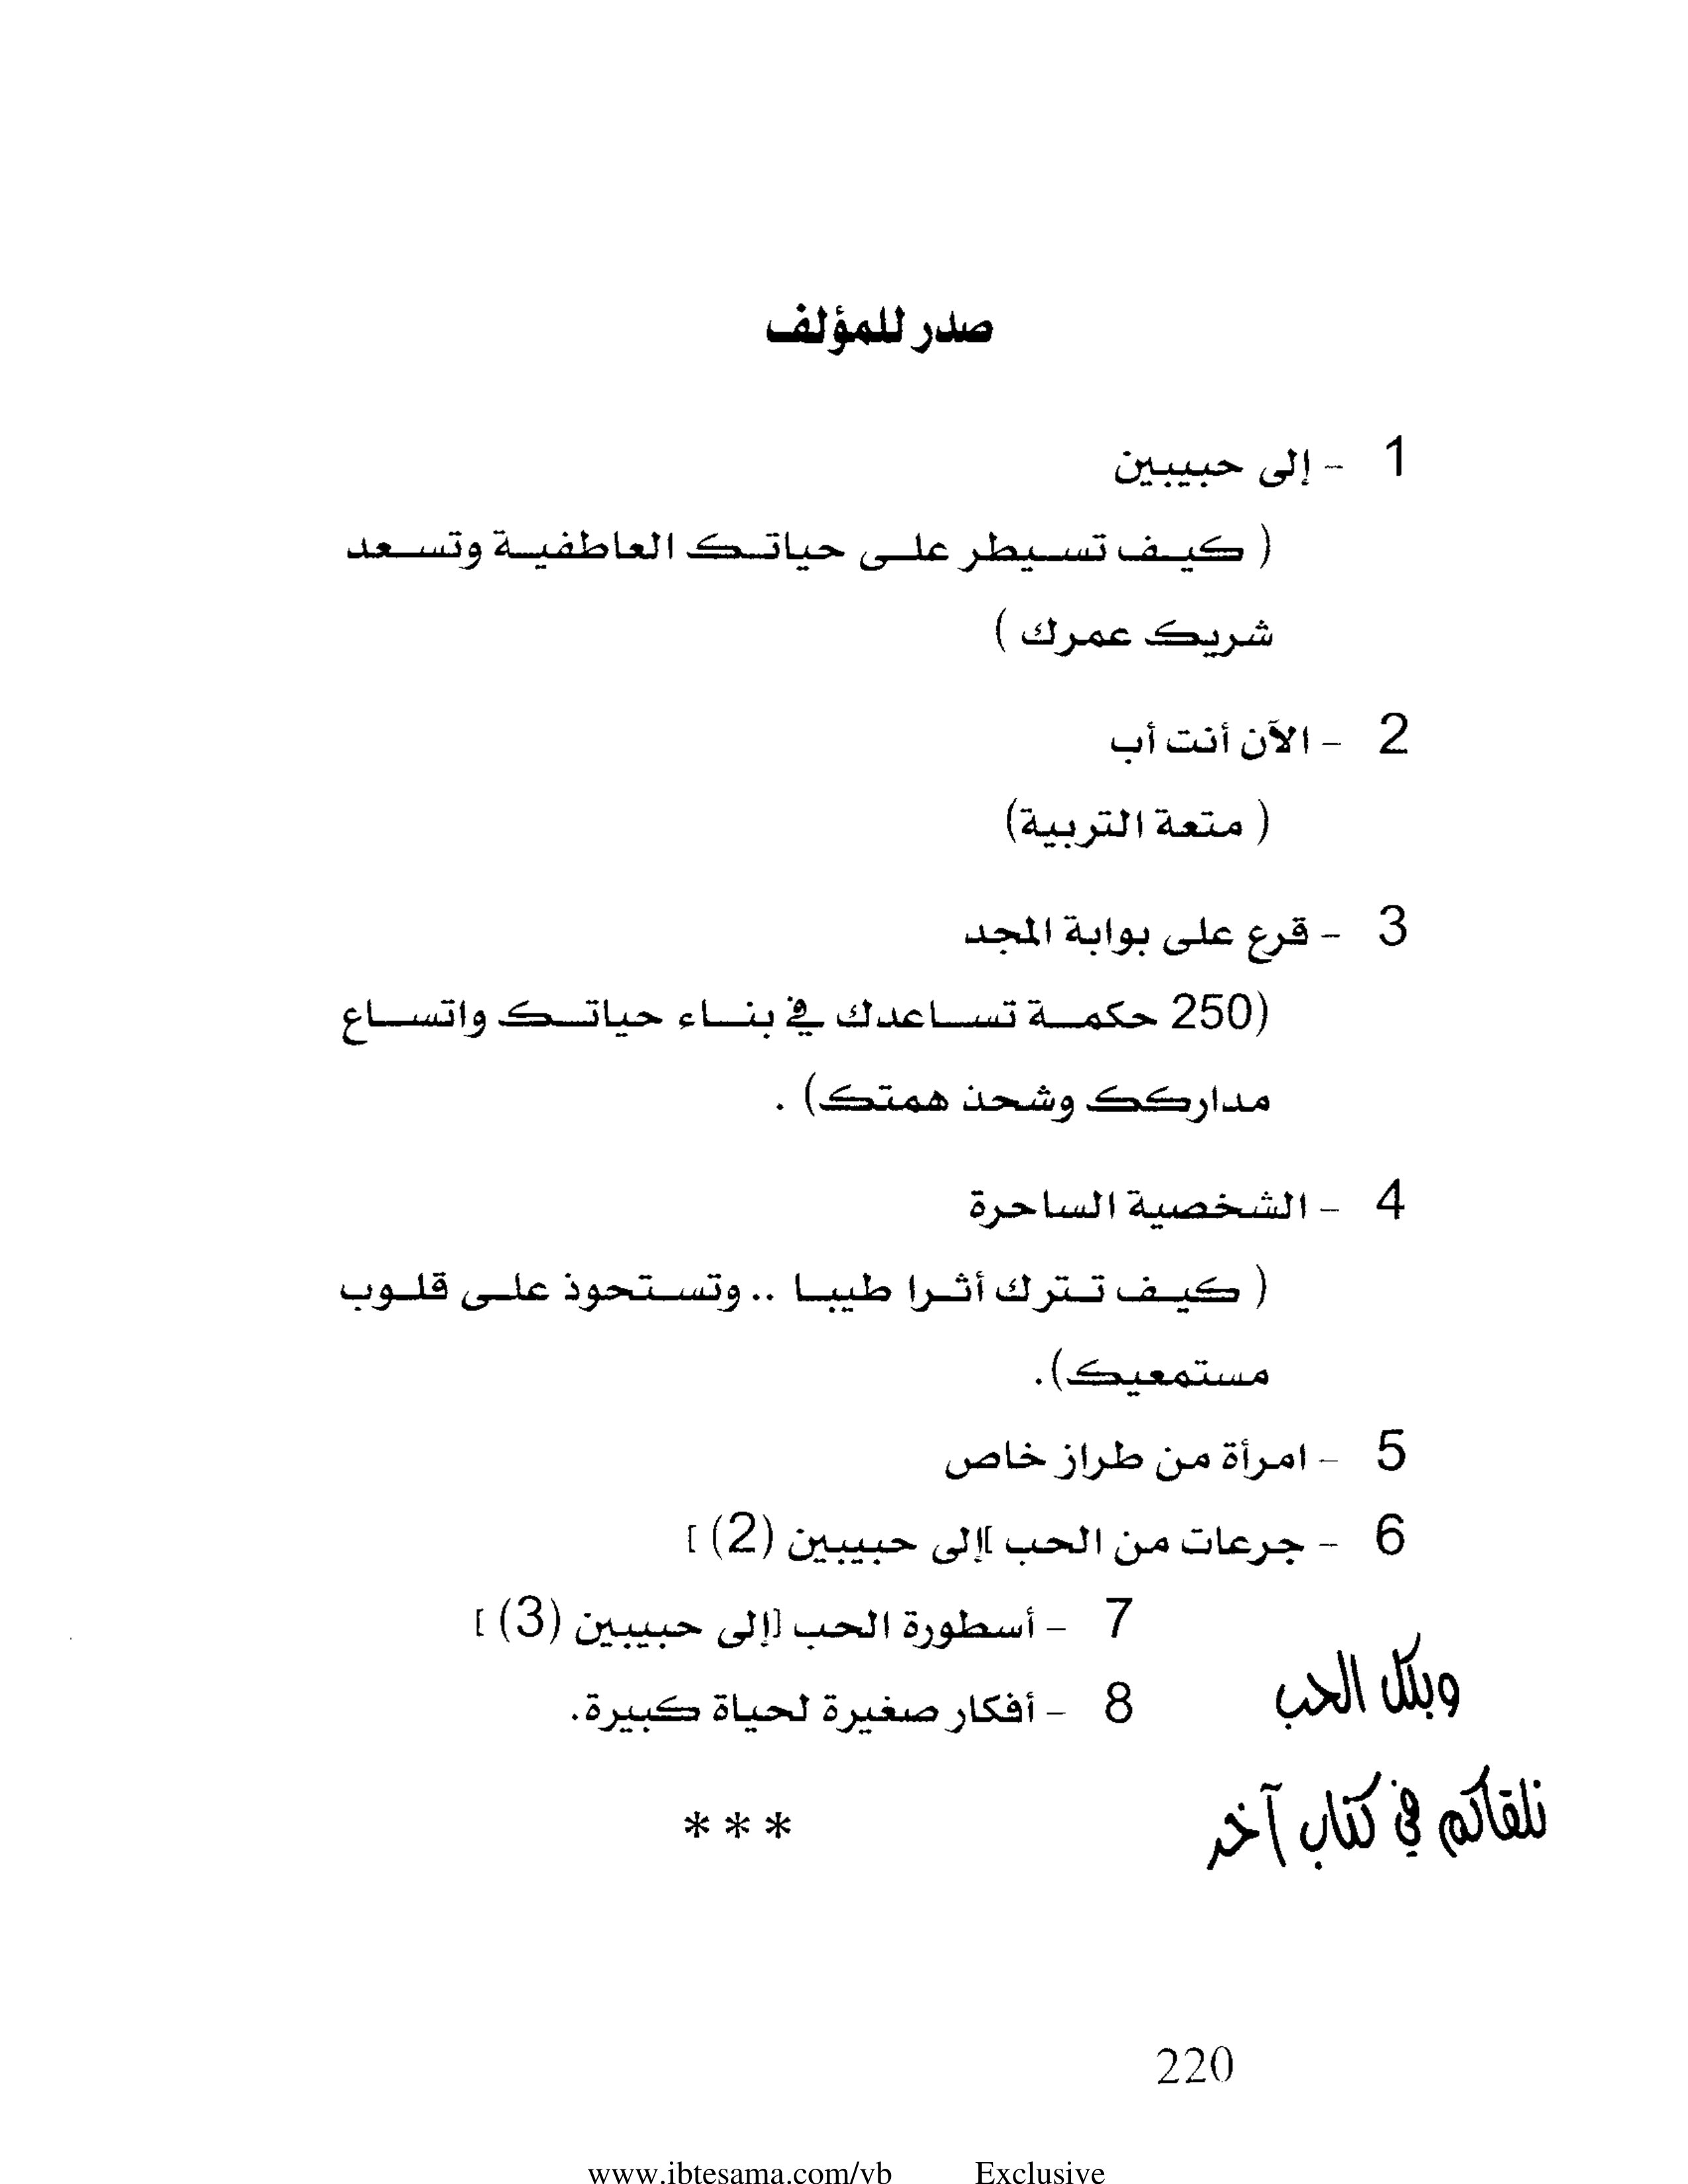 صدر للمؤلف
1 - إلى حبيبين
( كيف تسيطر على حياتك العاطفية وتسعد
شريك عمرك )
2 - الآن أنت أب
( متعة التربية)
3 - قرع على بوابة المجد
(250 حكمة تساعدك في بناء حياتك واتساع
مداركك وشحذ همتك) .
4 - الشخصية الساحرة
( كيف تترك أثرا طيبا .. وتستحوذ على قلوب
مستمعيك).
5 - امرأة من طراز خاص
6 - جرعات من الحب [إلى حبيبين (2) ]
7 - أسطورة الحب [إلى حبيبين (3) ]
8 - أفكار صغيرة لحياة كبيرة.
وبكل الحب
نلقاكم في كتاب آخر
***
220
www.ibtesama.com/vb Exclusive